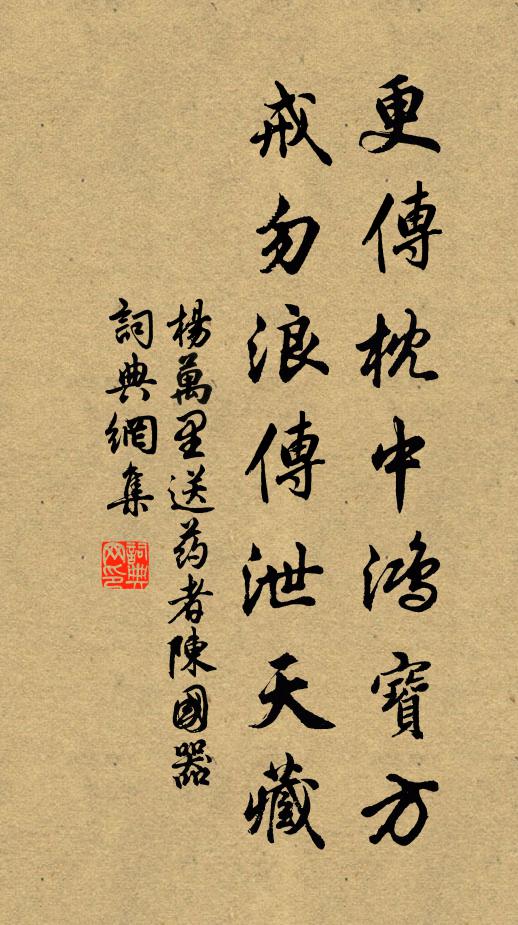 更傳枕中鴻寶方
戒勿浪傳泄天藏
楊萬里送药者陳國器
詞典網集
詞典网印